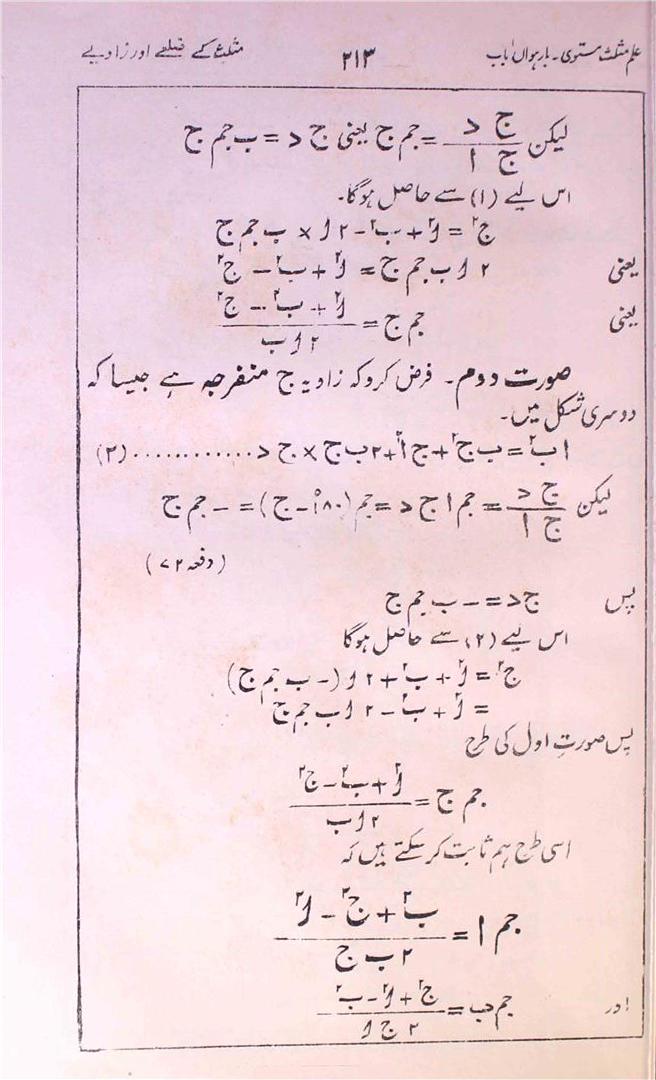 علم مثلث مستوی۔ بارہواں باب ۲۱۳ مثلث کے ضلعے اور زاویے
لیکن ج د / ج ا = جم ج یعنی ج د = ب جم ج
اس لیے (۱) سے حاصل ہوگا۔
ج۲ = أ۲ + ب۲ - ۲ أ × ب جم ج
یعنی ۲ أ ب جم ج = أ۲ + ب۲ - ج۲
یعنی جم ج = أ۲ + ب۲ - ج۲ / ۲ أ ب
صورت دوم۔ فرض کرو کہ زاویہ ج منفرجہ ہے جیسا کہ
دوسری شکل میں۔
ا ب۲ = ب ج۲ + ج ا۲ + ۲ ب ج × ج د ............ (۲)
لیکن ج د / ج ا = جم ا ج د = جم (۱۸۰° - ج) = - جم ج
(دفعہ ۷۲)
پس ج د = - ب جم ج
اس لیے (۲) سے حاصل ہوگا
ج۲ = أ۲ + ب۲ + ۲ أ (- ب جم ج)
= أ۲ + ب۲ - ۲ أ ب جم ج
پس صورتِ اول کی طرح
جم ج = أ۲ + ب۲ - ج۲ / ۲ أ ب
اسی طرح ہم ثابت کر سکتے ہیں کہ
جم ا = ب۲ + ج۲ - أ۲ / ۲ ب ج
اور جم ب = ج۲ + أ۲ - ب۲ / ۲ ج أ